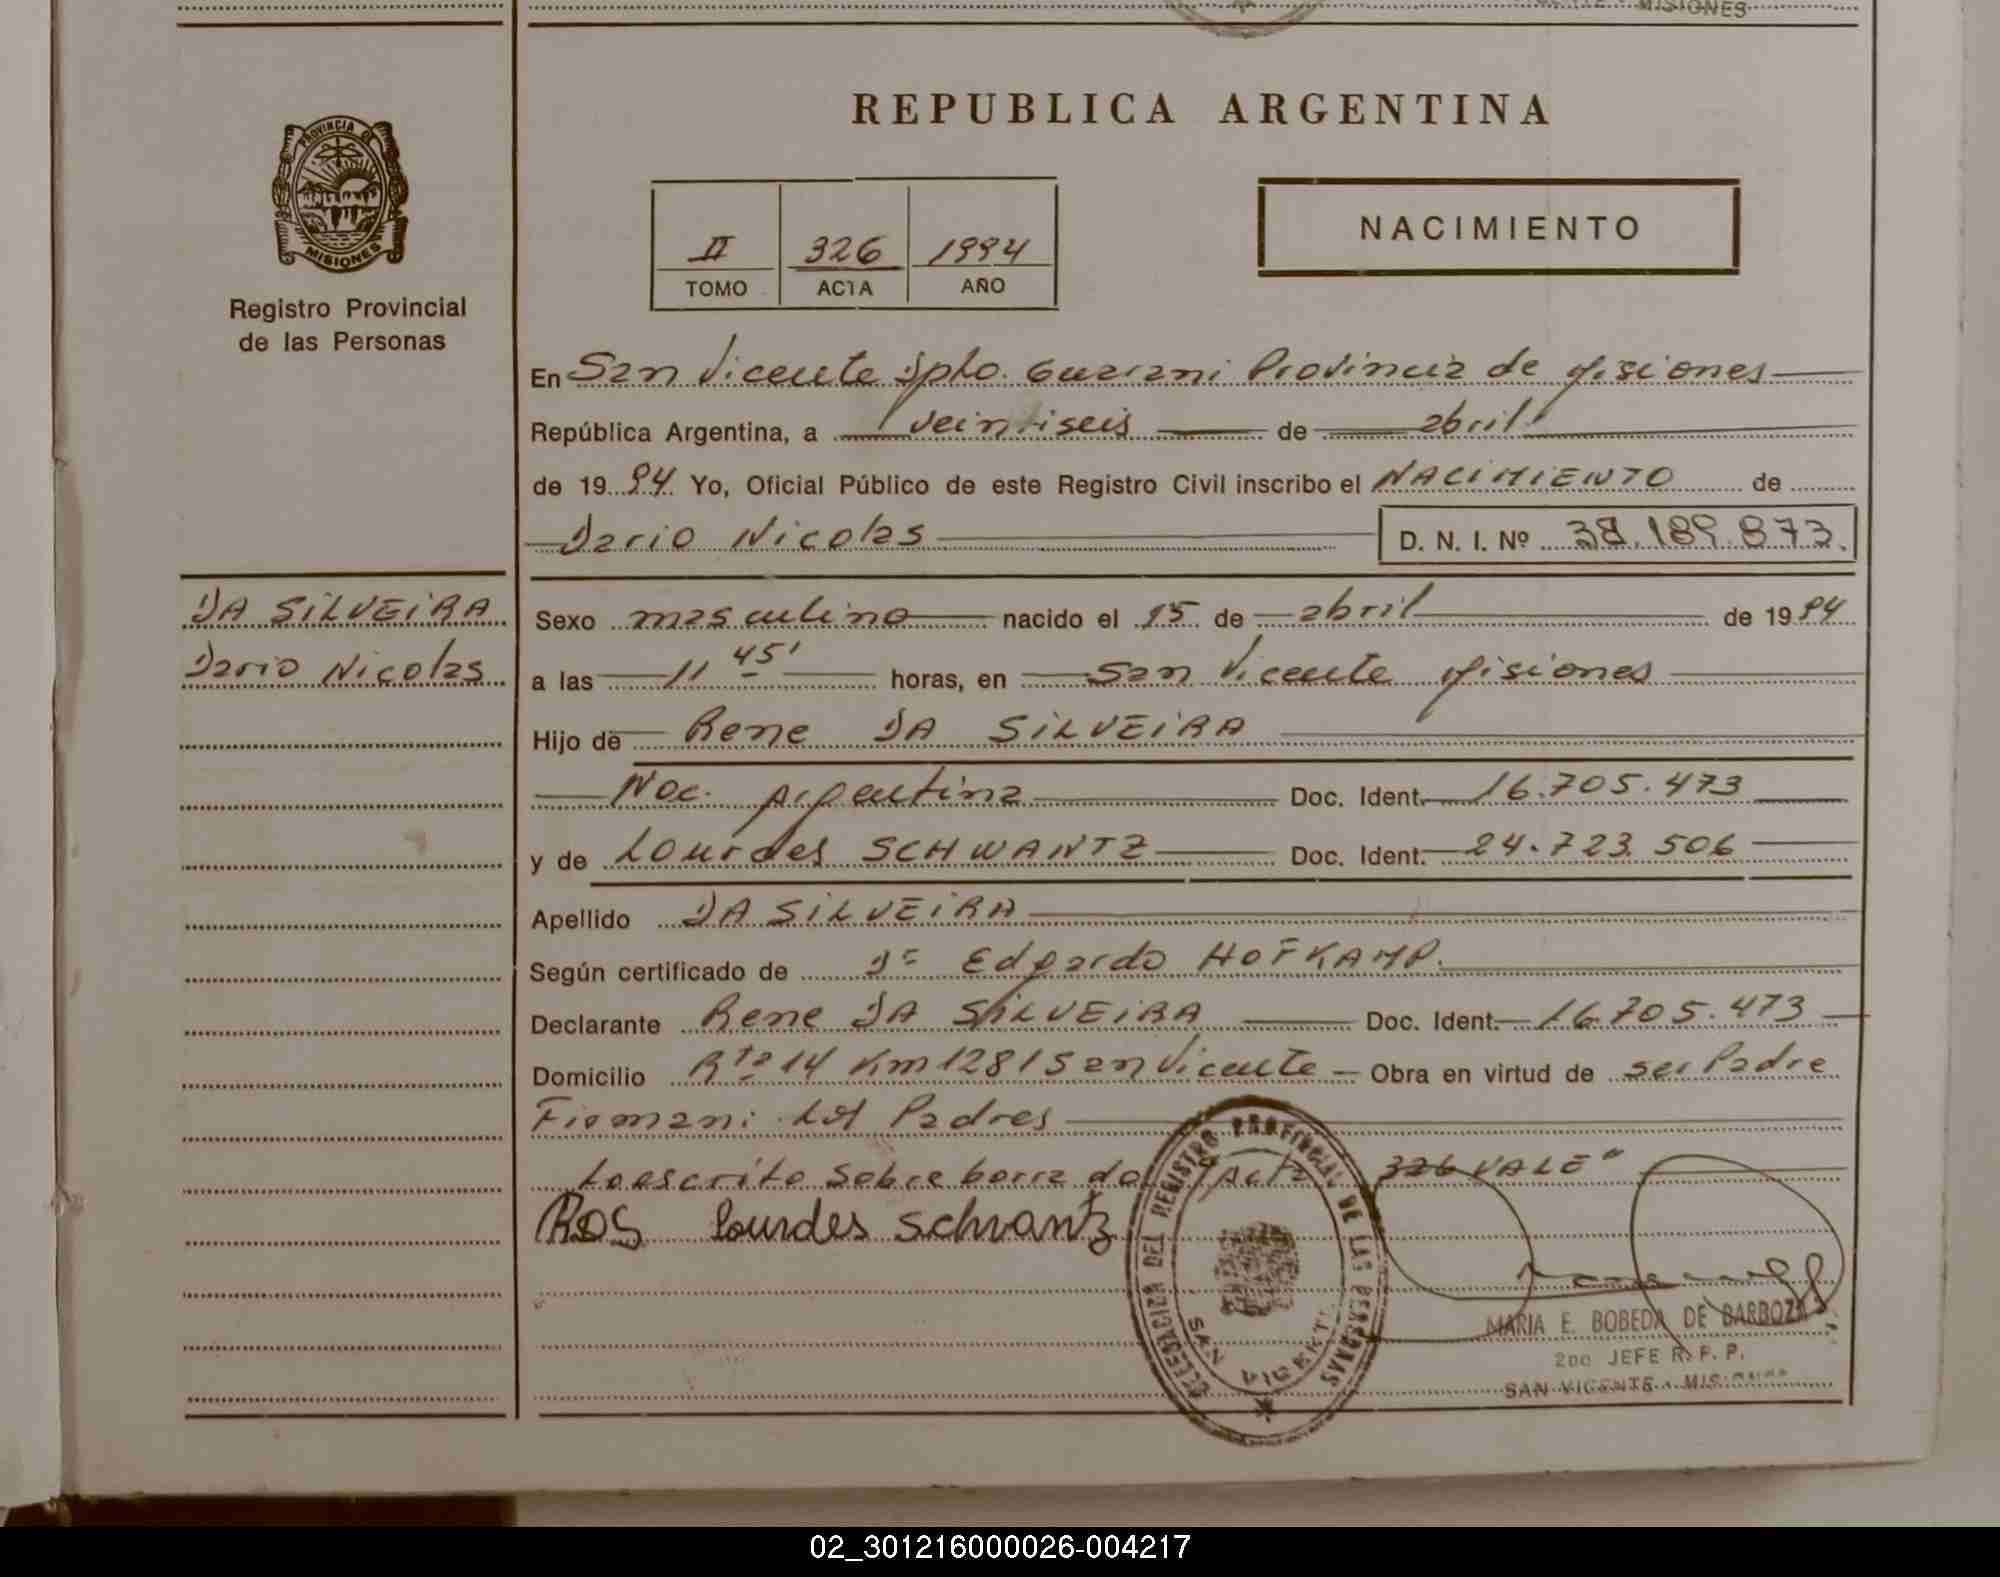 MISIONES
REPUBLICA ARGENTINA
PROVINCIA DE
MISIONES
Registro Provincial
de las Personas
II 326 1994
TOMO ACTA AÑO
NACIMIENTO
En San Vicente Dpto. Guarani Provincia de Misiones
República Argentina, a veintiseis de abril
de 1994 Yo, Oficial Público de este Registro Civil inscribo el NACIMIENTO de
Dario Nicolas D. N. I. Nº 38.189.873.
DA SILVEIRA
Dario Nicolas
Sexo masculino nacido el 15 de abril de 1994
a las 11 45' horas, en San Vicente Misiones
Hijo de Rene DA SILVEIRA
Nac. Argentina Doc. Ident. 16.705.473
y de Lourdes SCHWANTZ Doc. Ident. 24.723.506
Apellido DA SILVEIRA
Según certificado de Dr Edgardo HOFKAMP.
Declarante Rene DA SILVEIRA Doc. Ident. 16.705.473
Domicilio Rta 14 Km 1281 San Vicente Obra en virtud de ser Padre
Firman: los Padres
Lo escrito sobre borrado Acta 326 VALE"
RDS Lourdes Schwantz
DELEGACION DEL REGISTRO PROVINCIAL DE LAS PERSONAS
SAN VICENTE
MARIA E. BOBEDA DE BARBOZA
2DO JEFE R. P. P.
SAN VICENTE - MISIONES
02_301216000026-004217